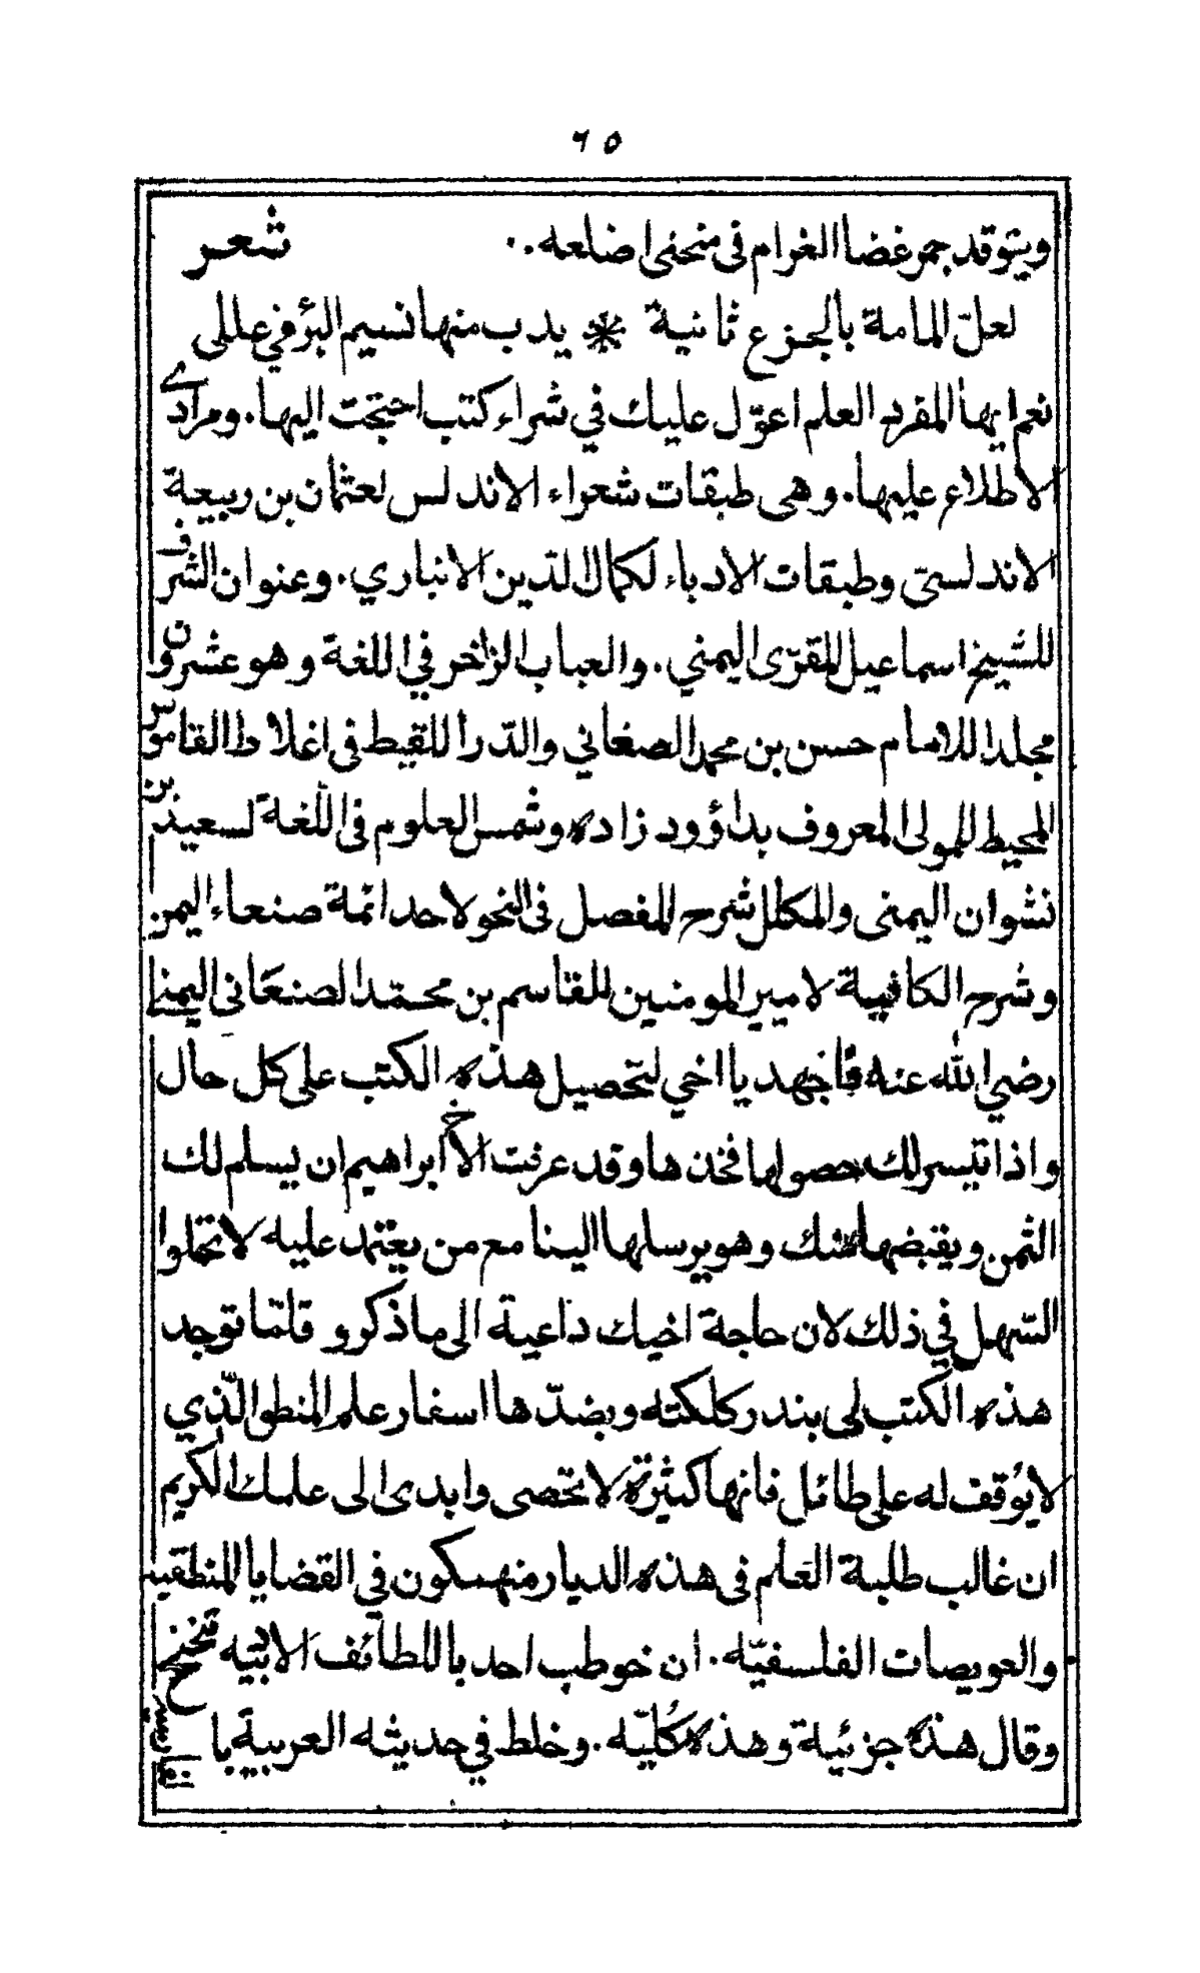 ٦٥
ويتوقد جمر غضا الغرام فى منحنى اضلعه . شعر
لعلّ المامة بالجزع ثانية * يدب منها نسيم البرؤ في عللى
نعم ايها المفرد العلم اعوّل عليك في شراء كتب احتجت اليها . ومرادي
الاطلاع عليها . وهى طبقات شعراء الاندلس لعثمان بن ربيعة
الاندلسىّ وطبقات الادباء لكمال الدّين الانباري . وعنوان الشرف
للشيخ اسماعيل المقرّى اليمني . والعباب الزاخر في اللغة وهو عشرون
مجلدا للامام حسن بن محمد الصغاني والدّر اللقيط فى اغلاط القاموس
المحيط للمولى المعروف بداؤود زاده وشمس العلوم فى اللّغة لسعيد بن
نشوان اليمنى والمكلل شرح المفصل فى النحو لاحد ائمة صنعاء اليمن
وشرح الكافية لامير المومنين القاسم بن محمّد الصنعانى اليمني
رضي الله عنه فاجهد يا اخي لتحصيل هذه الكتب على كل حال
واذا تيسر لك حصولها فخذها وقد عرفت الاخ ابراهيم ان يسلم لك
الثمن ويقبضها منك وهو يرسلها الينا مع من يعتمد عليه لا تخلوا
السّهل في ذلك لان حاجة اخيك داعية الى ما ذكر و قلّما توجد
هذه الكتب لى بندر كلكته وبضدّها اسفار علم المنطق الّذي
لا يُوقف له على طائل فانها كثيرة لا تحصى وابدى الى علمك الكريم
ان غالب طلبة العلم فى هذه الديار منهمكون في القضايا المنطقيه
والعويصات الفلسفيّه . ان خوطب احد باللطائف الادبيه تنحنح
وقال هذه جزئية وهذه كُليّه . وخلط في حديثه العربية بالفارسية